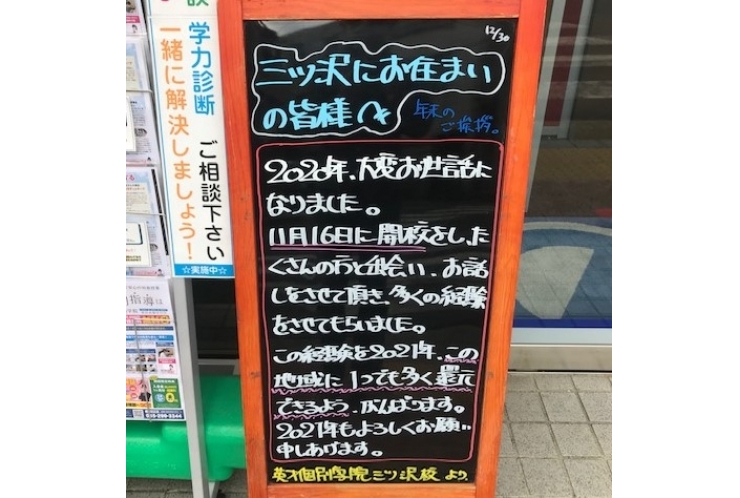 12/30
三ツ沢にお住まい
の皆様へ
年末の
ご挨拶。
2020年、大変お世話に
なりました。
11月16日に開校をした
くさんの方と出会い、お話
しをさせて頂き、多くの経験
をさせてもらいました。
この経験を2021年、この
地域に1つでも多く還元
できるよう、がんばります。
2021年もよろしくお願い
申しあげます。
英才個別学院 三ツ沢校 より
学力診断 ご相談下さい
一緒に解決しましょう!
☆実施中☆
指導